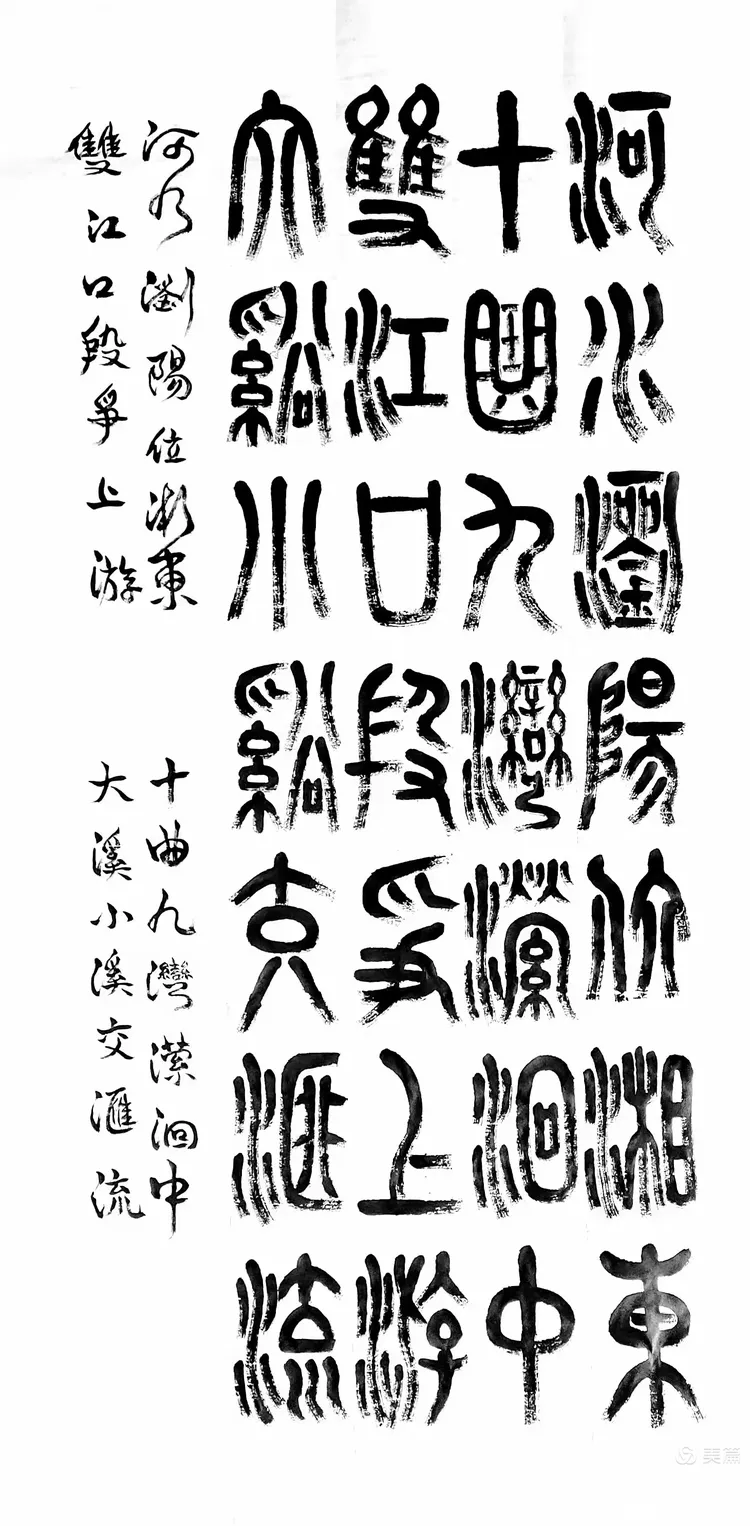 河水瀏陽位湘東
十曲九灣瀠洄中
雙江口段爭上游
大谿小谿交匯流
河水瀏陽位湘東 十曲九灣瀠洄中
雙江口段爭上游 大溪小溪交滙流
美篇